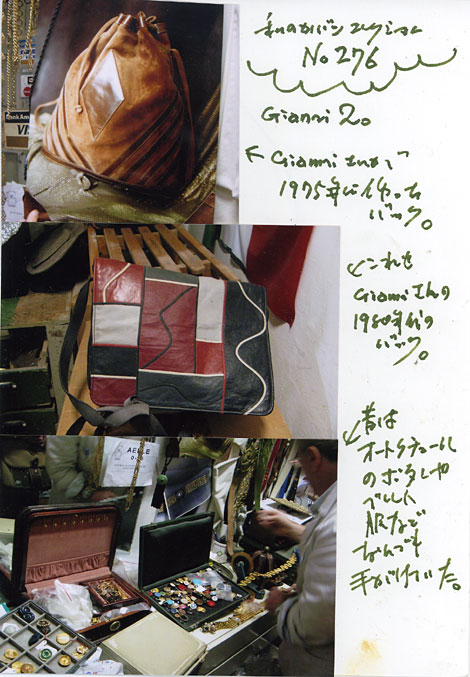 私のカバンコレクション
No 276
Gianni 2。
← Gianniさんが
1975年に作った
バック。
これも
Gianniさんの
1980年代の
バック。
昔は
オートクチュール
のボタンや
ベルト
服など
なんでも
手がけていた。
AELLE
BankAm
VI